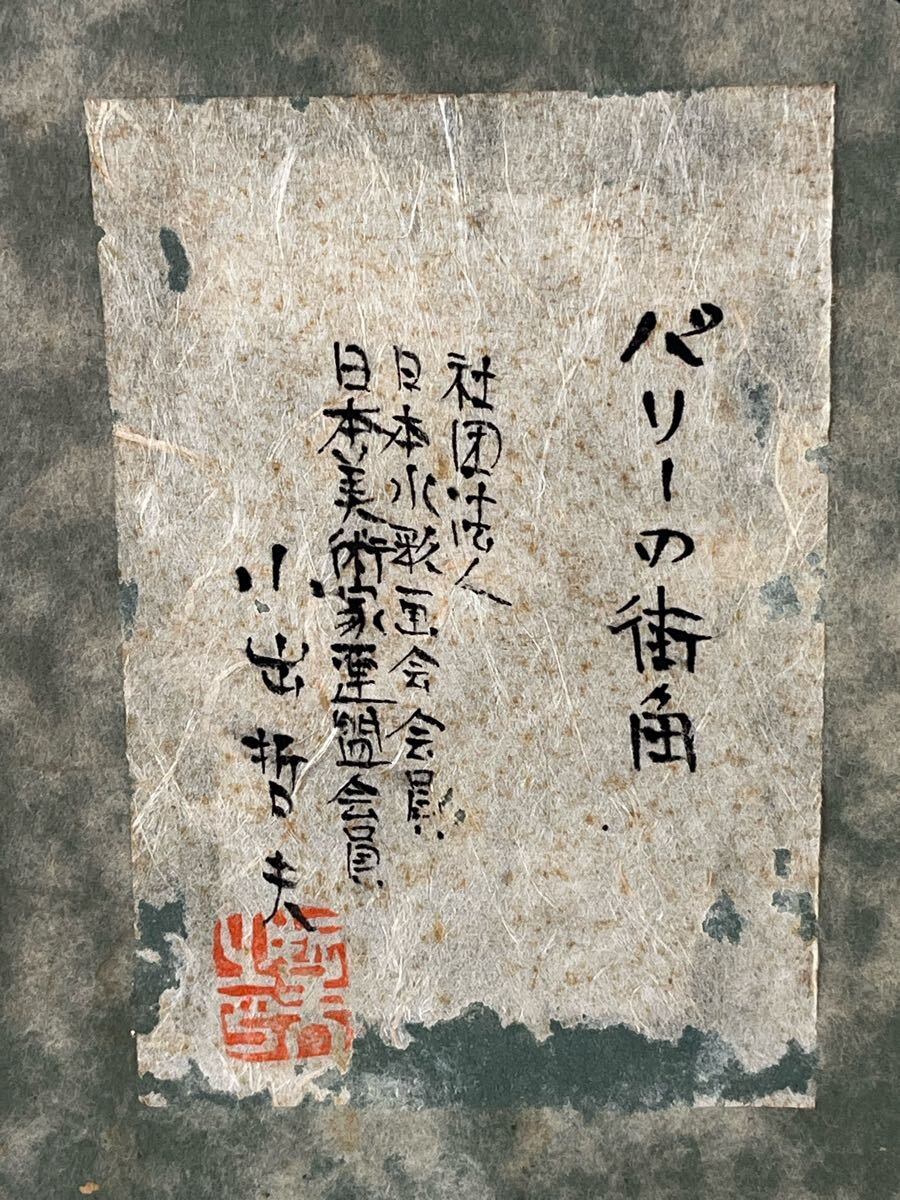 パリーの街角
社団法人
日本水彩画会会員
日本美術家連盟会員
小出哲夫